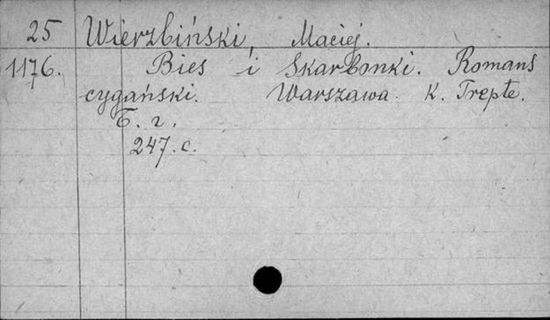 25 Wierzbiński, Maciej.
1176. Bies i Skarbonki. Romans
cygański. Warszawa. K. Trepte.
Б. г.
247. с.